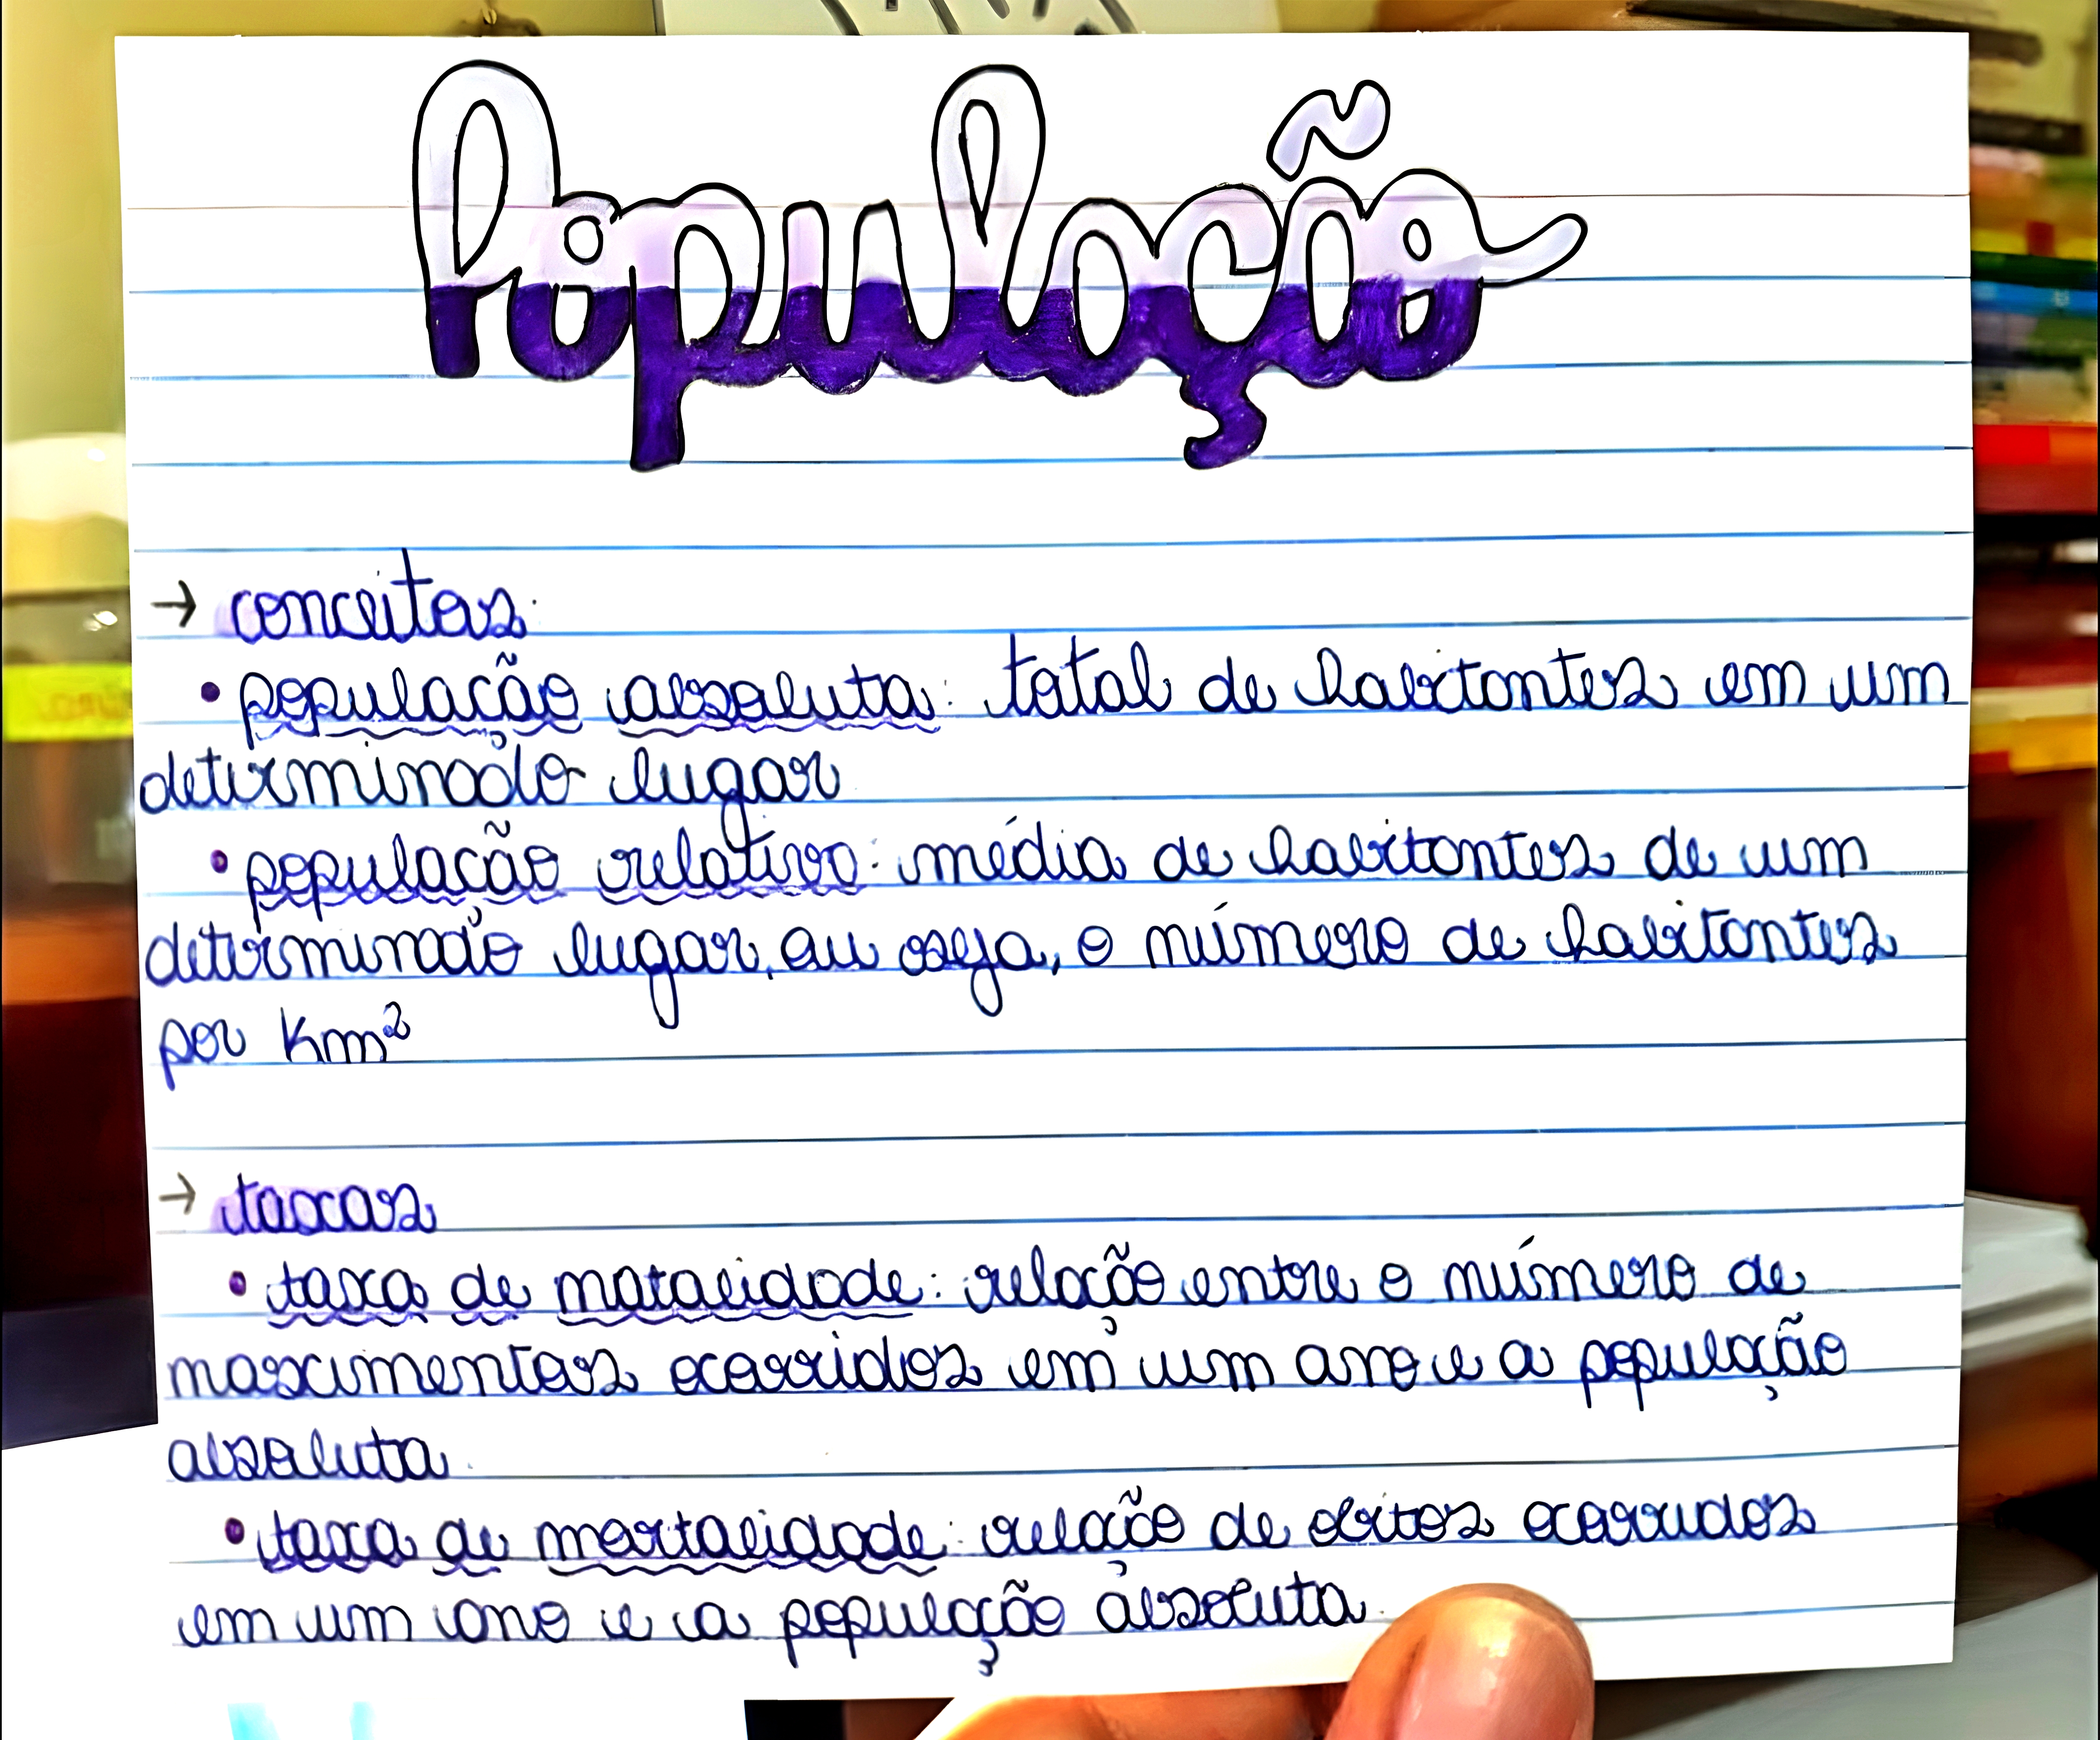 População
→ conceitos:
• população absoluta: total de habitantes em um
determinado lugar
• população relativa: média de habitantes de um
determinado lugar, ou seja, o número de habitantes
por Km²
→ taxas
• taxa de natalidade: relação entre o número de
nascimentos ocorridos em um ano e a população
absoluta.
• taxa de mortalidade: relação de óbitos ocorridos
em um ano e a população absoluta.